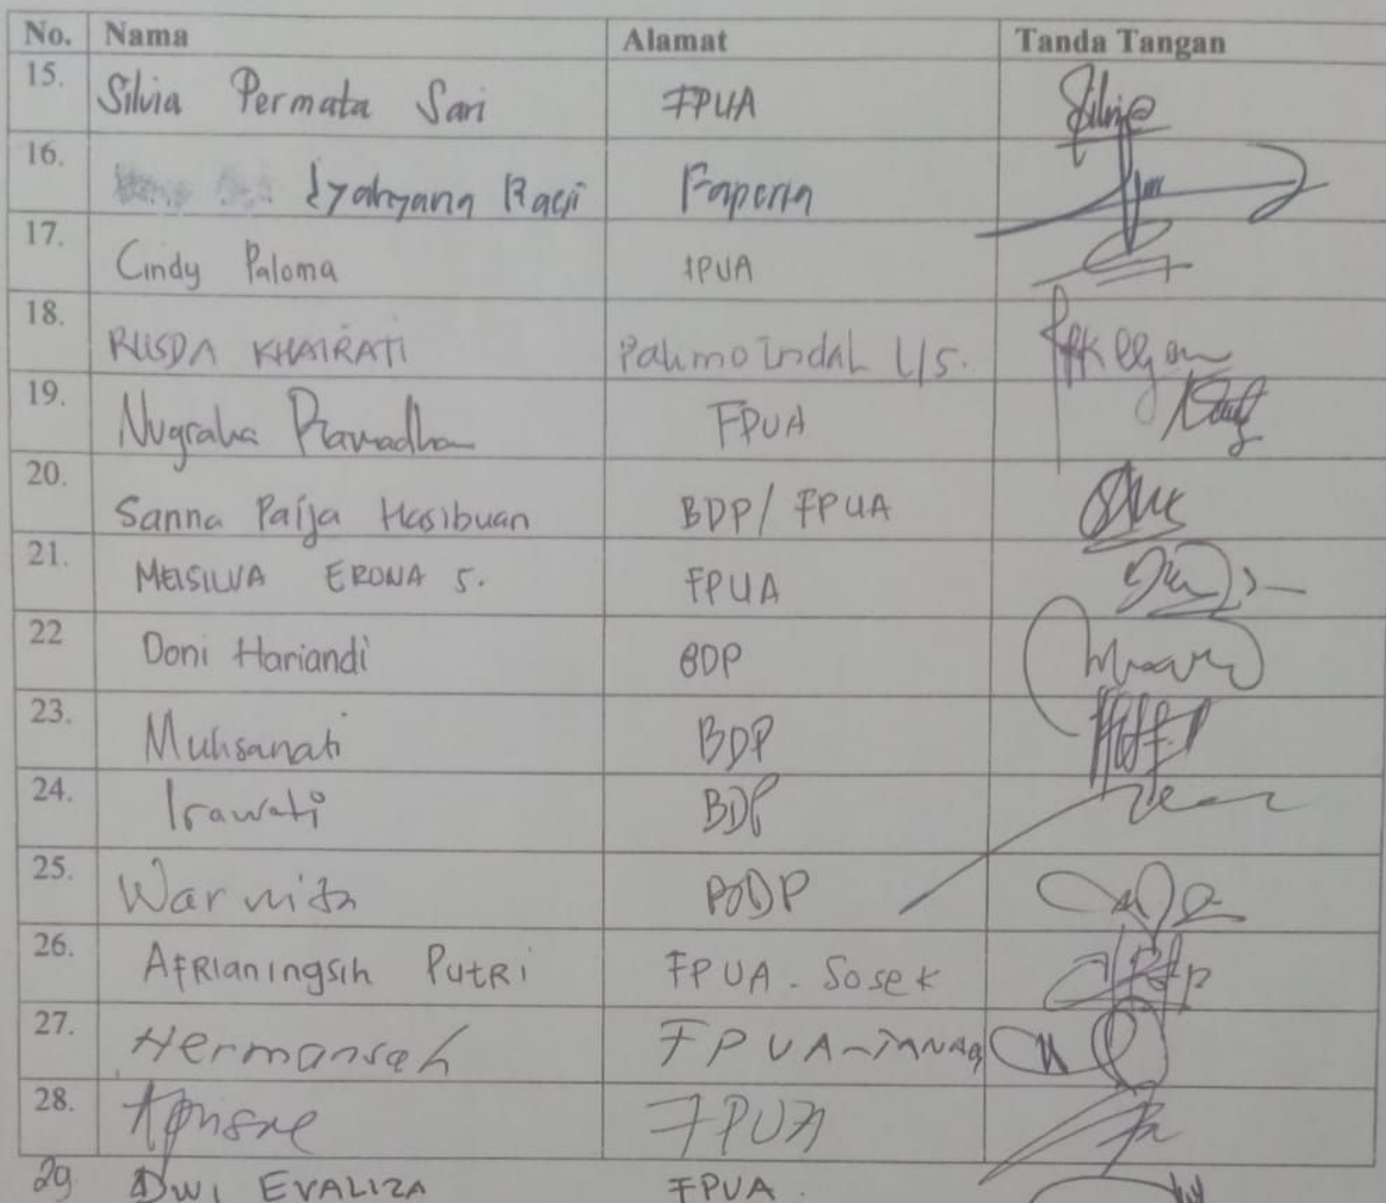 No. Nama Alamat Tanda Tangan
15. Silvia Permata Sari FPUA Silvia
16. Syahyana Raesi Faperta
17. Cindy Paloma FPUA
18. RUSDA KHAIRATI
19. Nugraha Ramadhan FPUA
20. Sanna Paija Hasibuan BDP/ FPUA
21. MEISILVA ERONA S. FPUA
22 Doni Hariandi BDP
23. Muhsanati BDP
24. Irawati BDP
25. Warnita BDP
26. AFRIaningsih PutRi FPUA - Sosek
27. Hermansah FPUA-TANAH
28. FPUA
29 DWI EVALIZA FPUA.